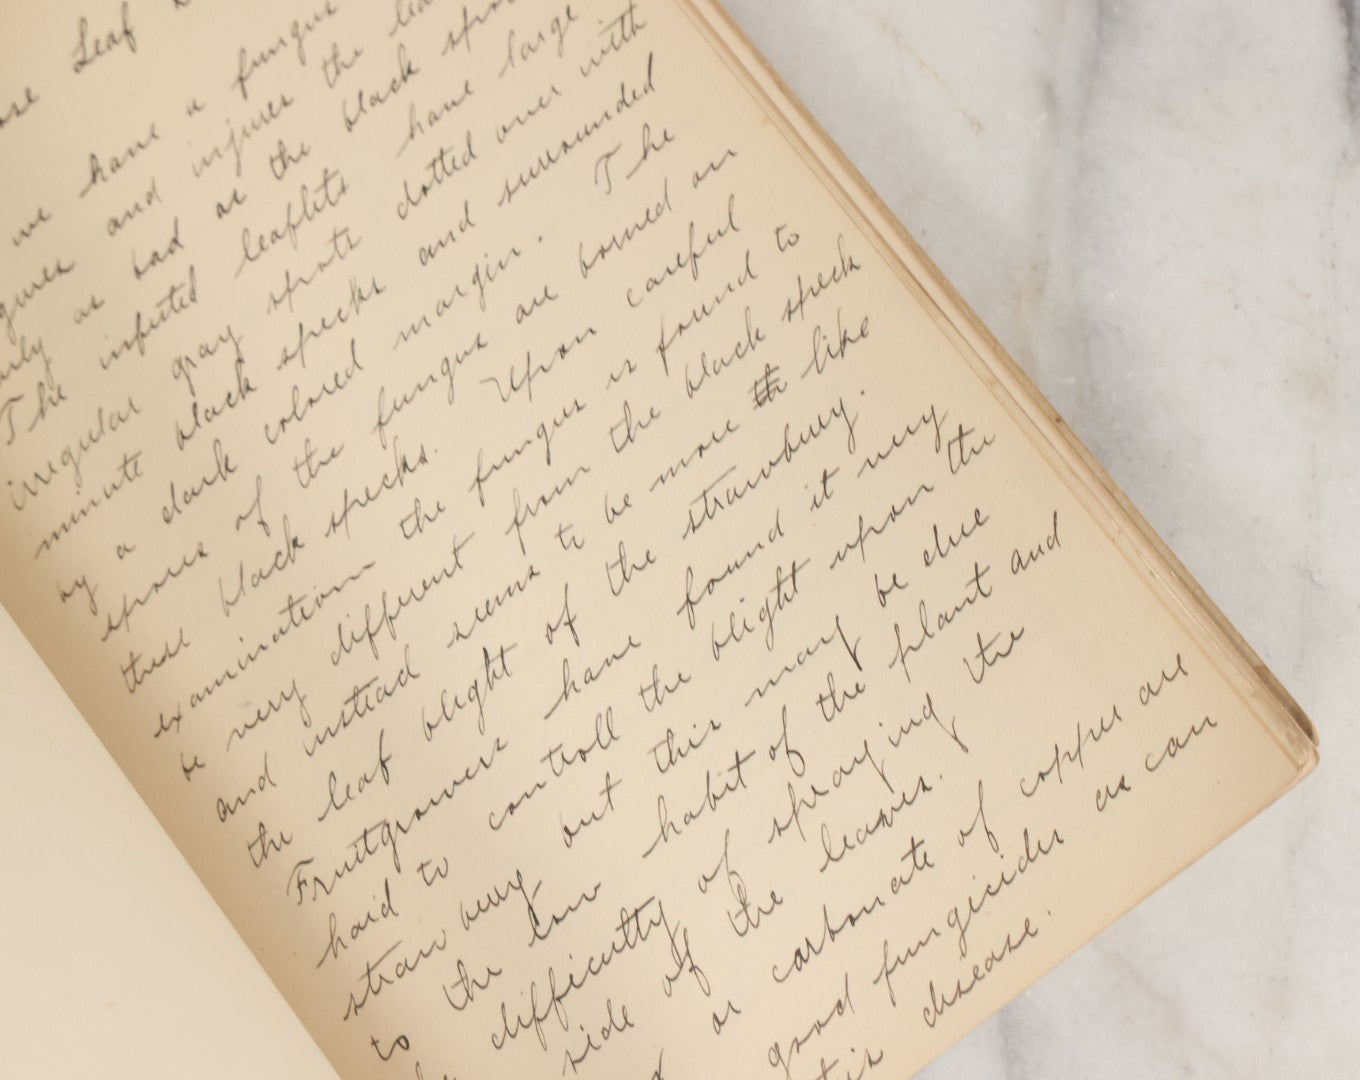 Leaf
we have a fungus
and injures the
as bad as the black
The infected leaflets have large
irregular gray spots dotted over with
minute black specks and surrounded
by a dark colored margin. The
spores of the fungus are borned on
these black specks. Upon careful
examination the fungus is found to
be very different from the black speck
and instead seems to be more like
the leaf blight of the strawbury.
Fruitgrowers have found it very
hard to controll the blight upon the
straw bery but this may be due
to the low habit of the plant and
difficulty of spraying the
side of the leaves.
or carbonate of copper are
good fungicides as can
disease.